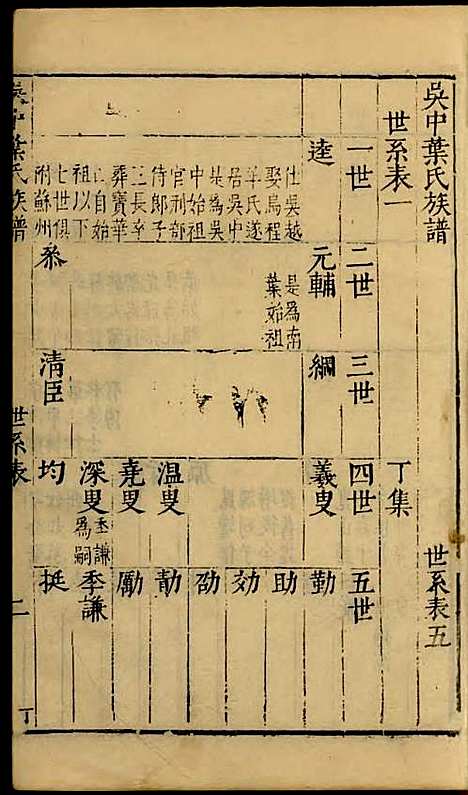 吳中葉氏族譜
世系表五
世系表一
丁集
一世
二世
三世
四世
五世
逵
仕吳越
娶烏程
羊氏遂
居吳中
是為吳
中始祖
官刑部
侍郎子
三長卒
葬寶華
山自始
祖以下
七世俱
附蘇州
元輔
是為南
葉始祖
綱
羲叟
勤
助
効
劭
溫叟
勣
堯叟
勵
深叟
季謙
為嗣
季謙
叅
清臣
均
挺
吳中葉氏族譜
世系表
二
丁